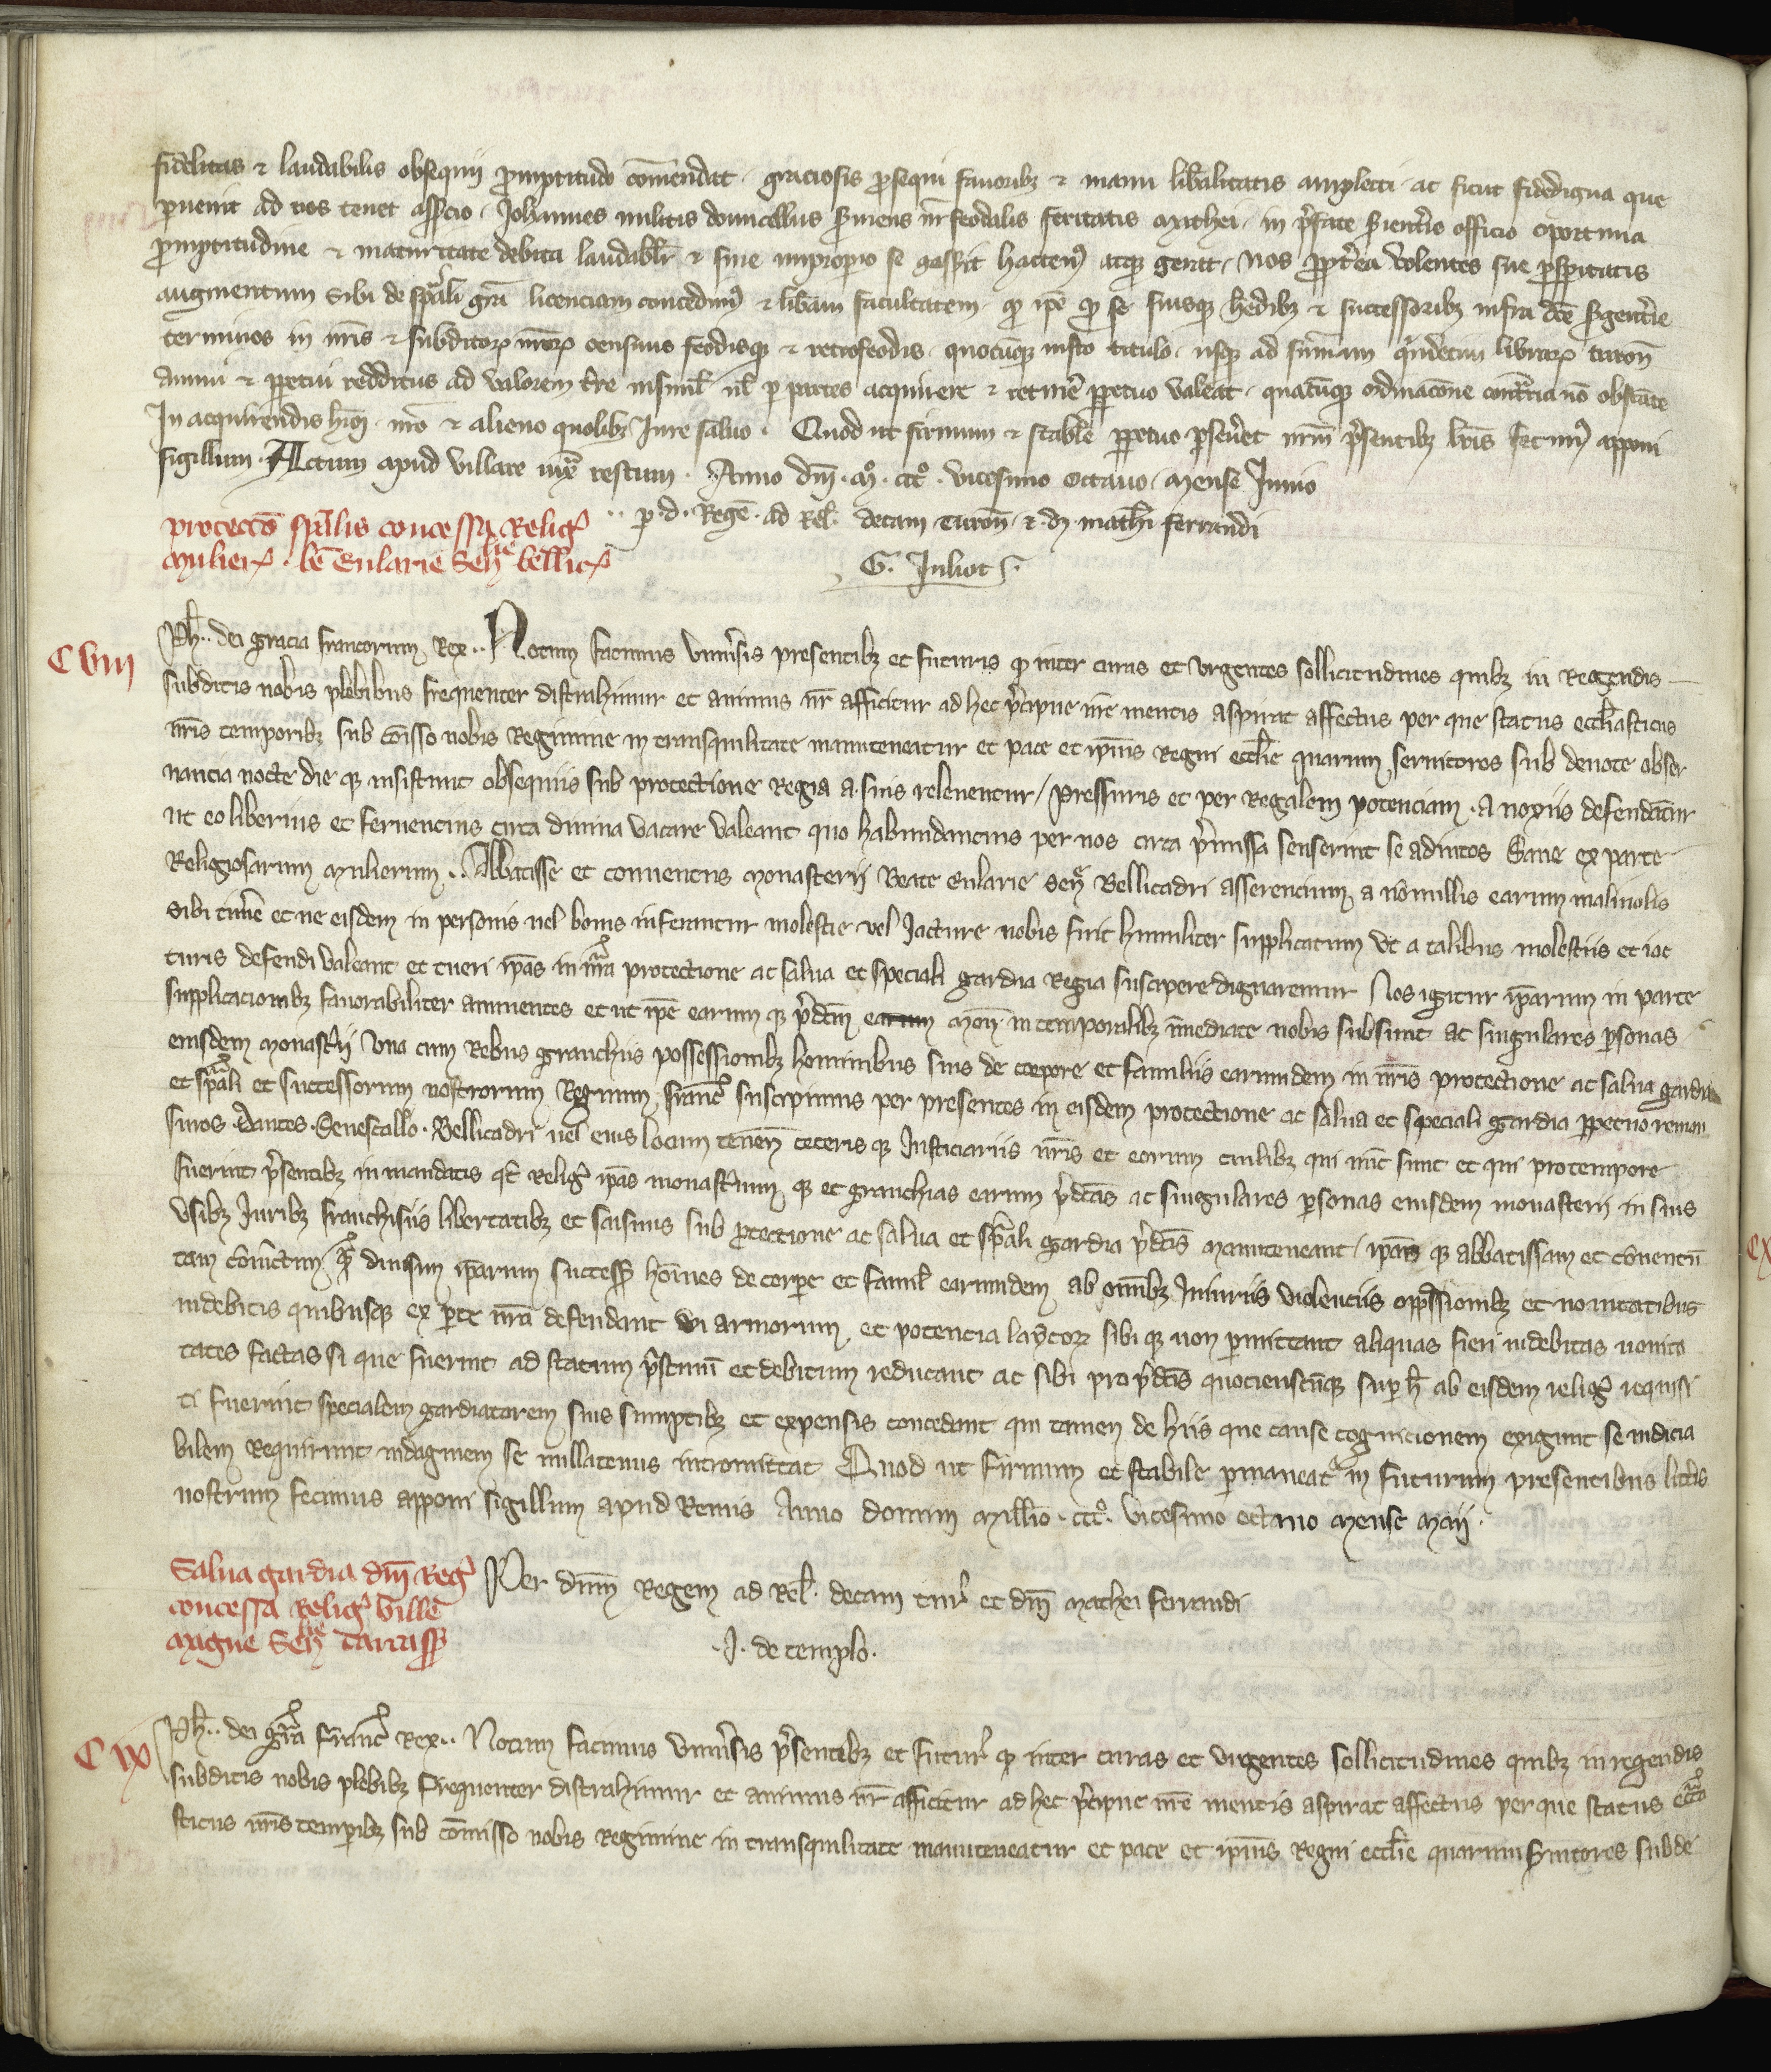 fidelitas ⁊ laudabilis obsequij promptitudo com̄endat graciosis prosequi fauoribꝫ ⁊ manu lib̄alitatis amplecti ac sicut fidedigna que
peruenit ad nos tenet assercio Johannes militis domicellus s̄uiens n̄r feodalis feritatis mathei in p̄fate s̄ient̄ie officio oportuna
promptitudine ⁊ maturitate debita laudabilr̄ ⁊ sine improperio se gessit hacten̄ atqꝫ gerit nos propt̄ea volentes sue prosperitatis
augmentum sibi de sp̄ali gr̄a licenciam concedim̄ ⁊ lib̄am facultatem qd̄ ip̄e pro se suisqꝫ hedibꝫ ⁊ successoribꝫ infra dc̄e s̄gent̄ie
terminos in nr̄is ⁊ subditorꝝ nr̄orꝝ censiuis feodisqꝫ ⁊ retrofeodis quocūqꝫ iusto titulo usqꝫ ad sum̄am quindecim librarꝝ turon̄
annui ⁊ ꝑpetui redditus ad valorem tr̄e insimul ul̄ ꝑ partes acquirere ⁊ retin̄e ꝑpetuo valeat quacūqꝫ ordinacōne contr̄ia nō obstāte
In acquirendis hm̄oi nr̄o ⁊ alieno quolibꝫ Jure saluo Quod ut firmum ⁊ stabile ꝑpetuo ꝑseueret nr̄m p̄sentibꝫ lr̄is fecim̄ apponi
sigillum Actum apud villare iuxͣ restum Anno dn̄i mͦ cccͦ vicesimo octauo mense Junio
protectō spālis concessa Religꝰ
mulierꝝ be Eularie Senͫ bellicͫ
ꝑ d Regē ad Rel̄ decani Turon̄ ⁊ dn̄i math̄i ferrandi
G. Juliot
C viii
Ph̄ dei gracia francorum Rex Notum facimus Vniūsis presentibꝫ et futuris qd̄ inter curas et vrgentes sollicitudines quibꝫ in Regendis
subditis nobis plebibus frequenter distrahimur et animus nr̄ afficitur ad hec p̄cipue nr̄e mentis aspirat affectus per que status eccl̄iasticus
nr̄is temporibꝫ sub cōisso nobis Regimine in transquilitate manuteneatur et pace et ip̄ius Regni eccl̄ie quarum seruitores sub deuote obser
uancia nocte die qꝫ insistunt obsequiis sub protectione Regia a suis releuentur pressuris et per Regalem potenciam a noxiis defendātur
ut eo liberius et feruencius circa diuina vacare valeant quo habundancius per nos circa p̄missa senserint se adiutos Sane ex parte
Religiosarum mulierum Abbatisse et conuentus monasterii Beate Eularie senͫ Bellicadri asserencium a nōnullis earum maliuolis
sibi tim̄e et ne eisdem in personis uel bonis inferantur molestie vel Jacture nobis fuit humiliter supplicatum vt a talibus molestiis et iac
turis defendi valeant et tueri ip̄as in nr̄a protectione ac salua et speciali gardia Regia suscipere dignaremur Nos igitur ip̄arum in parte
supplicacionibꝫ fauorabiliter annuentes et ut ip̄e earum qꝫ p̄dc̄m earum mon̄ in temporalibꝫ īmediate nobis subsunt ac singulares personas
eiusdem monast̄ii vna cum Rebus granchiis possessionibꝫ hominibus suis de corpore et familiis earumdem in nr̄is protectione ac salua gardia
et sp̄ali et successorum nostrorum Regum franc̄ suscipimus per presentes in eisdem protectione ac salua et speciali gardia ꝑpetuo reman
suros Dantes Senescallo Bellicadri uel eius locum tenen̄ ceteris qꝫ Justiciariis nr̄is et eorum cuilibꝫ qui nūc sunt et qui pro tempore
fuerint p̄sentibꝫ in mandatis qd̄ Religꝰ ip̄as monast̄ium qꝫ et granchias earum p̄dc̄as ac singulares personas eiusdem monasterii in suis
vsibꝫ Juribꝫ franchisiis libertatibꝫ et saisinis sub protectione ac salua et sp̄ali gardia p̄dc̄is manuteneant ip̄as qꝫ abbatissam et cōuentū
tam cōiūctim qͣ diuisim ip̄arum success̄ hoīnes de corpore et famil̄ earumdem ab om̄ibꝫ Iniuriis violenciis opp̄ssionibꝫ et nouitatibus
indebitis quibusqꝫ ex ꝑte nr̄a defendant vi armorum et potencia laycorꝝ sibi qꝫ non ꝑmittant aliquas fieri indebitas nouita
tates factas si que fuerint ad statum p̄stinū et debitum reducant ac sibi pro p̄dc̄is quocienscūqꝫ suꝑ h̄ ab eisdem religꝰ requisi
ti fuerint specialem gardiatorem suis sumptibꝫ et expensis concedant qui tamen de hiis que cause cognicionem exigunt seu iudicia
bilem requirunt indaginem se nullatenus intromittat Quod ut firmum et stabile ꝑmaneat in futurum presentibus litt̄is
nostrum fecimus apponi sigillum apud Remis Anno domini mill̄io cccͦ vicesimo octauo mense maij
Salua gardia dn̄i Regꝭ
concessa Religꝰ Ville
magne Senͫ Carcass̄
Per dn̄m Regem ad Rel̄ decani tur̄ et dn̄i mathei ferrandi
J. de templo.
C ix
Ph̄ dei gr̄a franc̄ Rex Notum facimus vniūsis p̄sentibꝫ et futur̄ qd̄ inter curas et vrgentes sollicitudines quibꝫ in regendis
subditis nobis plebibꝫ frequenter distrahimur et animus nr̄ afficitur ad hec p̄cipue nr̄e mentis aspirat affectus per que status eccl̄ia
sticus nr̄is temporibꝫ sub cōmisso nobis regimine in transquilitate manuteneatur et pace et ip̄ius Regni eccl̄ie quarum s̄uitores sub de
cx